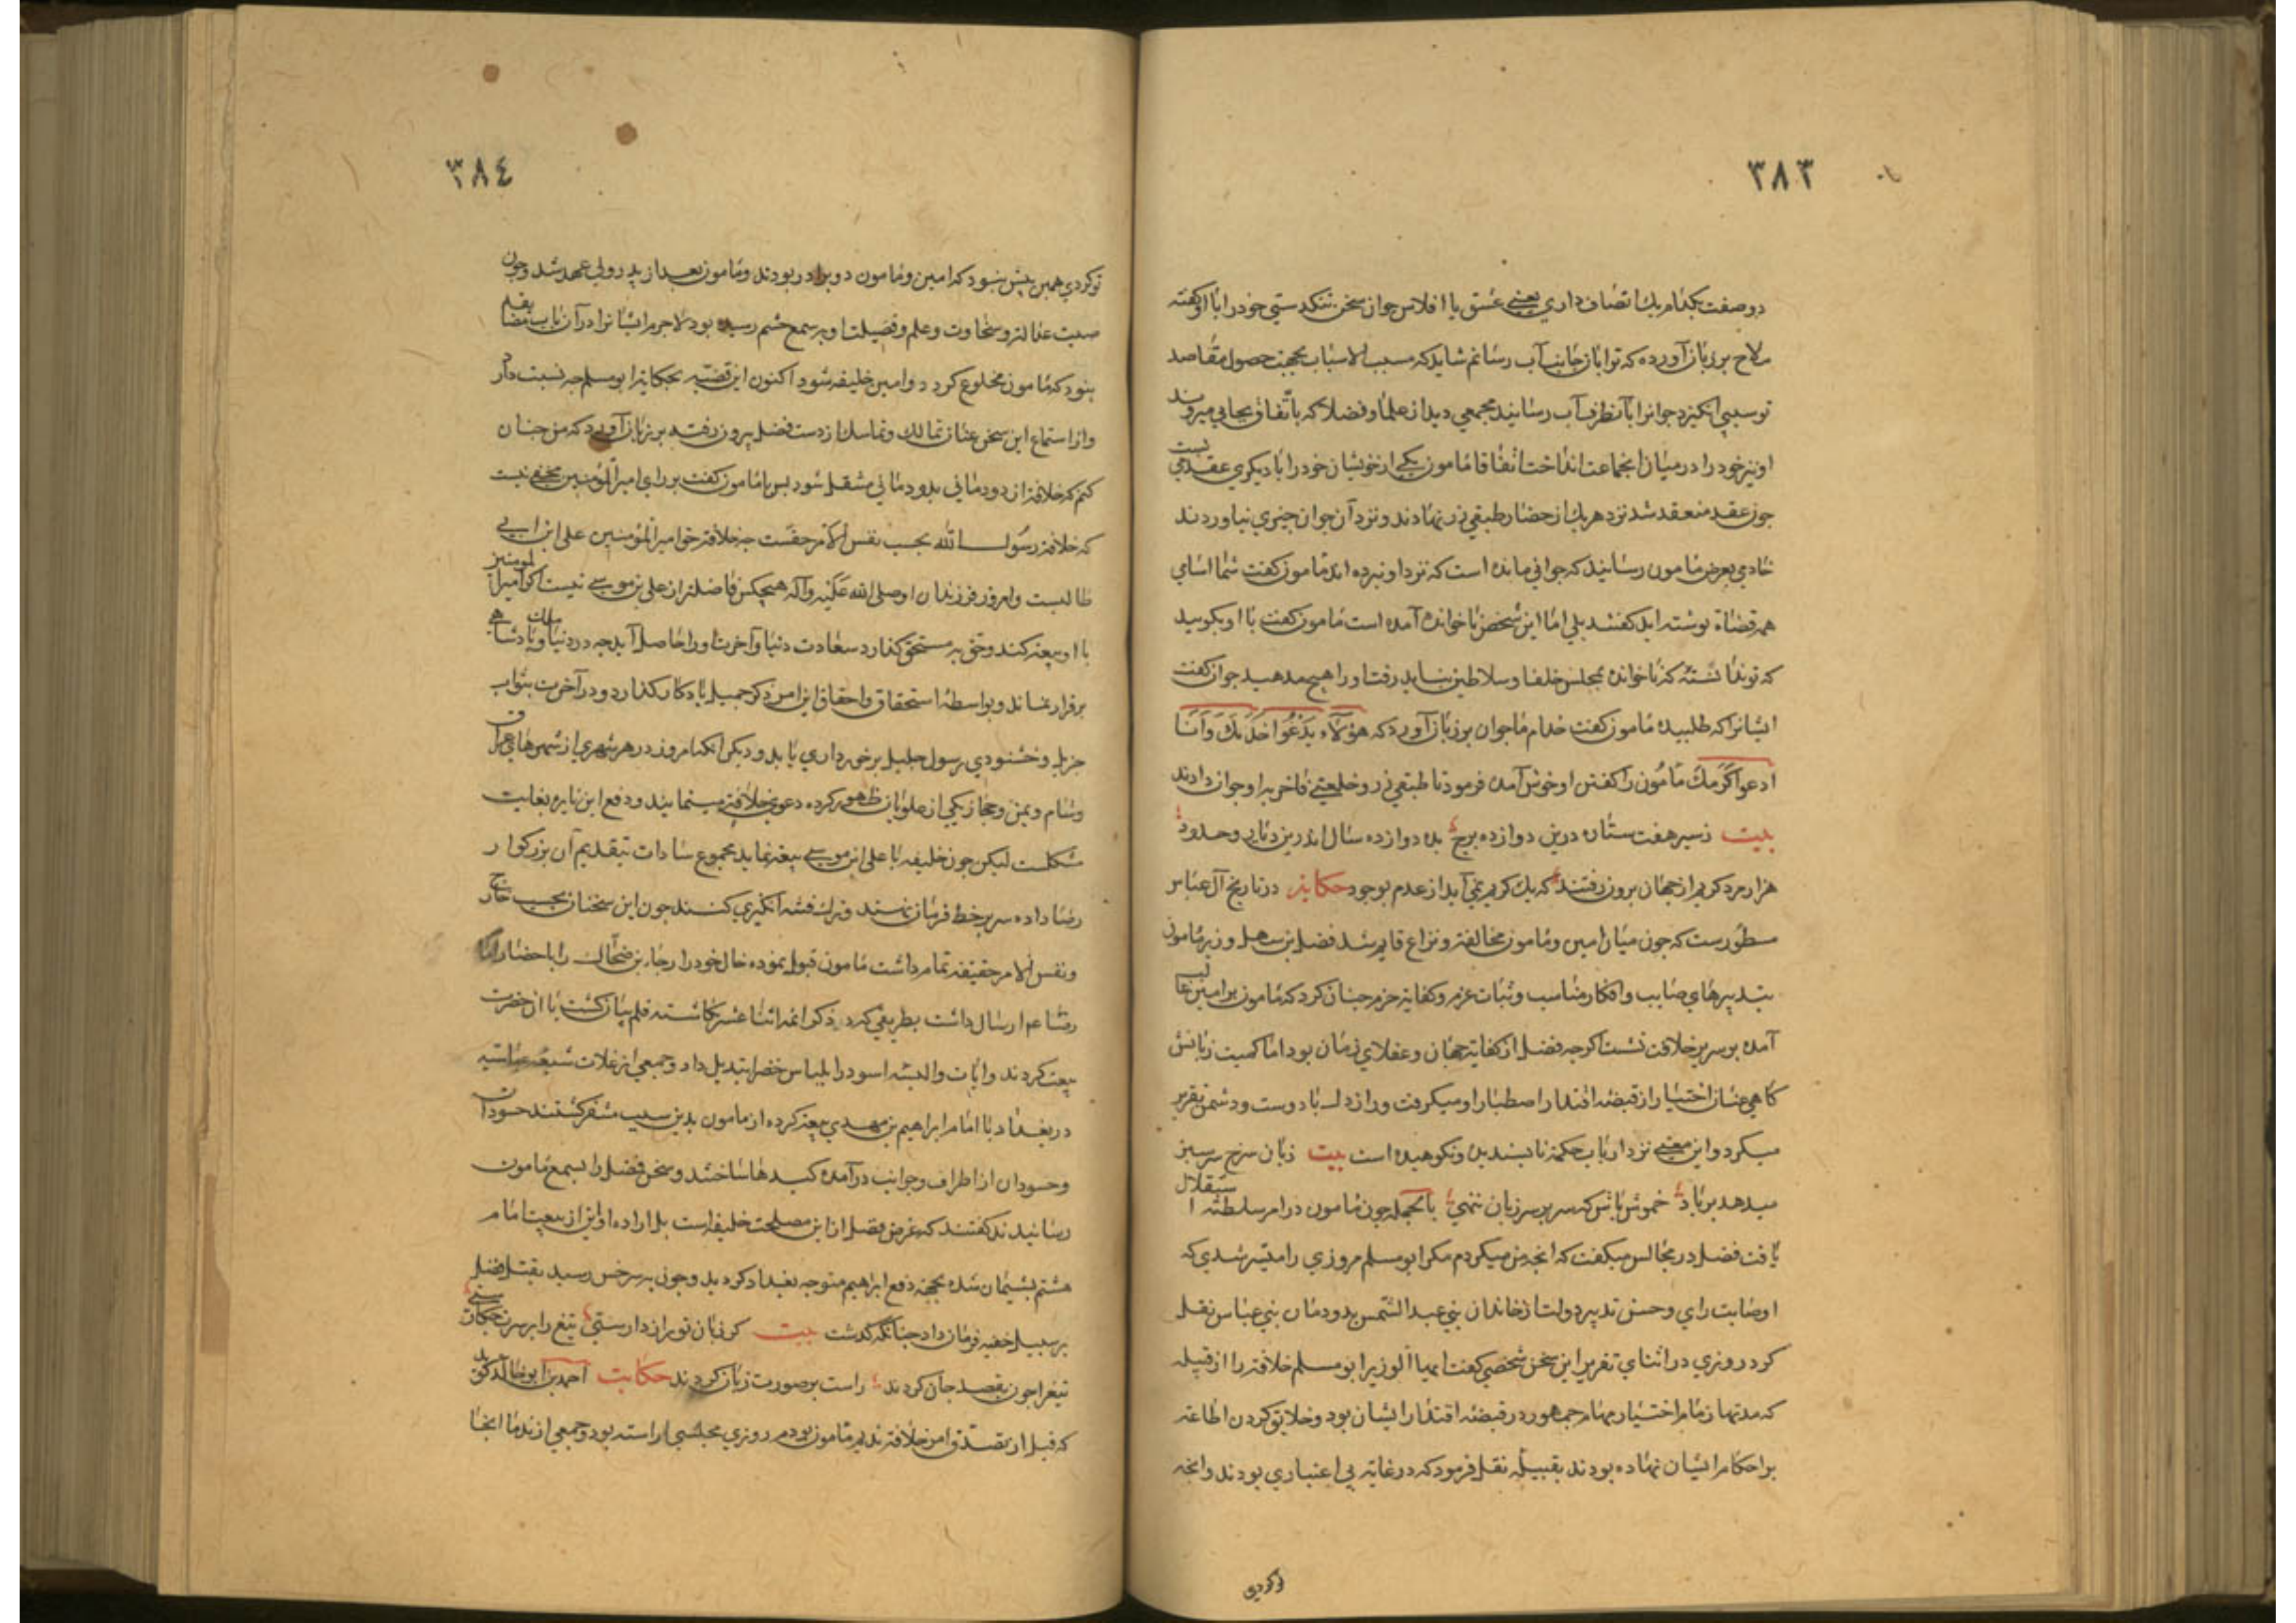 ٣٨٣
دو صفت کدام یك اتصاف داری یعنی عشق یا افلاس جوان از سخن تنکدستی خود را با او کفته
ملاح بر زبان آورده که ترا بآن جانب آب رسانم شاید که مسبب الاسباب بجهت حصول مقاصد
تو سببی انکیزد جوانرا بآنطرف آب رسانید مجمعی دید از علما و فضلا که باتّفاق بجایی میروند
او نیز خود را در میان آنجماعت انداخت اتفاقا مامون یکی از خویشان خود را با دیکری عقد می بست
جون عقد منعقد شد نزد هر یك از حضار طبقی زر نهادند و نزد آن جوان جیزی نیاوردند
خادمی بعرض مامون رسانید که جوانی مانده است که نزد او نبرده اند مامون کفت شما اسامی
همه قضاة نوشته اید کفتند بلی امّا این شخص ناخوانده آمده است مامون کفت با او بکویید
که تو ندانسته که ناخوانده بمجلس خلفا و سلاطین نباید رفت او را هیچ مدهید جوان کفت
ایشانرا که طلبیده مامون کفت خدام ما جوان بر زبان آورد که هؤلآء یدْعُوا خدمك وَاَنَا
ادعوا کَرَمك مامُون را کفتن او خوش آمده فرمود تا طبقی زر و خلعتی فاخر به او جوان دادند
بیت ز سیر هفت ستاره درین دوازده برج بده دوازده سال اندرین دیار و حدود
هزار مرد کریم از جهان برون رفتند که یك کریم نمی آید از عدم بوجود حکایة در تاریخ آل عباس
مسطورست که جون میان امین و مامون مخالفت و نزاع قایم شد فضل بن سهل وزیر مامون
بتدبیرهای صایب و افکار مناسب و ثبات عزم و کفایة حزم جنان کرد که مامون بر امین غالب
آمده بر سریر خلافت نشست اکرجه فضل از کفاة جهان و عقلای زمان بود اما کمیت زبانش
کاهی عنان اختیار از قبضه اقتدار اصطبار او میکرفت و راز دل با دوست و دشمن تقریر
میکرد و این معنی نزد ارباب حکمة ناپسندیده و نکوهیده است بیت زبان سرخ سر سبز
میدهد بر باد خموش باش که سر بر سر زبان ننهی بالجمله جون مامون در امر سلطنة استقلال
یافت فضل در مجالس میکفت که انجه من میکردم مکر ابو مسلم مروزی را میسّر شدی که
او صابت رای و حسن تدبیر دولت از خاندان بنی عبد الشمس بدودمان بنی عباس نقل
کرد روزی در اثنای تقریر این سخن شخصی کفت ایها الوزیر ابو مسلم خلافة را از قبیله
که مدتها زمام اختیار مهام جمهور در قبضه اقتدار ایشان بود و خلایق کردن اطاعة
بر احکام ایشان نهاده بودند بقبیلة نقل فرمود که در غایة بی اعتباری بودند و انجه
تو کردی
٣٨٤
تو کردی همین بیش نبود که امین و مامون دو برادر بودند و مامون بعد از پدر ولی عهد شد و جون
صیت عدالت و سخاوت و علم و فضیلت او بر سمع حشم رسیده بود لاجرم ایشانرا در آن باب مضایقه
نبود که مامون مخلوع کردد و امین خلیفه شود اکنون این قضیّه بحکایة ابو مسلم جه نسبت دارد
و از استماع این سخن عنان تمالك و تماسك از دست فضل بیرون رفته بر زبان آورد که من جنان
کنم که خلافة از دودمانی بدودمانی منتقل شود بس با مامون کفت بر رای امیر المؤمنین مخفی نیست
که خلافة رسول الله بحسب نفس الامر حقست جه خلافة حق امیر المؤمنین علی ابن ابی
طالبست و امروز فرزندان او صلی الله علیه وآله هیچکس فاضلتر از علی بن موسی نیست اکر امیر المومنین
با او بیعة کند و حق به مستحق کذارد سعادت دنیا و آخرت او را حاصل آید جه در دنیا و پادشاهی
برقرار بماند و بواسطة استحقاق و احقاق این امر ذکر جمیل یادکار بکذارد و در آخرت بثواب
جزیل و خشنودی رسول جلیل برخورداری یابد و دیکر انکه امروز در هر شهری از شهرهای عراق
و شام و یمن و حجاز یکی از علویان ظهور کرده دعوی خلافة مینمایند و دفع این نایره بغایت
مشکلست لیکن جون خلیفه با علی ابن موسی بیعة نماید مجموع سادات بتقدیم آن بزرکوار
رضا داده سر بر خط فرمان نهند و ترك فتنه انکیزی کنند جون این سخنان بحسب خارج
و نفس الامر حقیقة تمام داشت مامون قبول نموده خال خود را رجا بن ضحّاك را باحضار امام
رضا ع م ارسال داشت بطریقی که در ذکر ائمه اثنا عشر کاشته قلم بیان کشت با آن حضرت
بیعت کردند و رایات و البسه اسود را بلباس خضر تبدیل داد و جمعی از غلات شیعه عباسیه
در بغداد با امام ابراهیم بن مهدی بیعة کرده از مامون بدین سبب متنفر کشتند حسودان
و حسودان از اطراف و جوانب درآمده کیدها ساختند و سخن فضل را بسمع مامون
رسانیدند کفتند که غرض فضل از این مصلحت خلیفه است بل اراده او این از بیعت امام
هشتم پشیمان شده بجهة دفع ابراهیم متوجه بغداد کردید و جون به سرخس رسید بقتل فضل
بر سبیل خفیه فرمان داد جنانکه کذشت بیت کر زبان تو راز دارستی تیغ را بر سرت جکارستی
تیغ را جون بقصد جان کردند راست بر صورت زبان کردند حکایت احمد بن ابو خالد کوید
که قبل از تصدّی امر خلافة ندیم مامون بودم روزی مجلسی اراسته بود و جمعی از ندما انجا